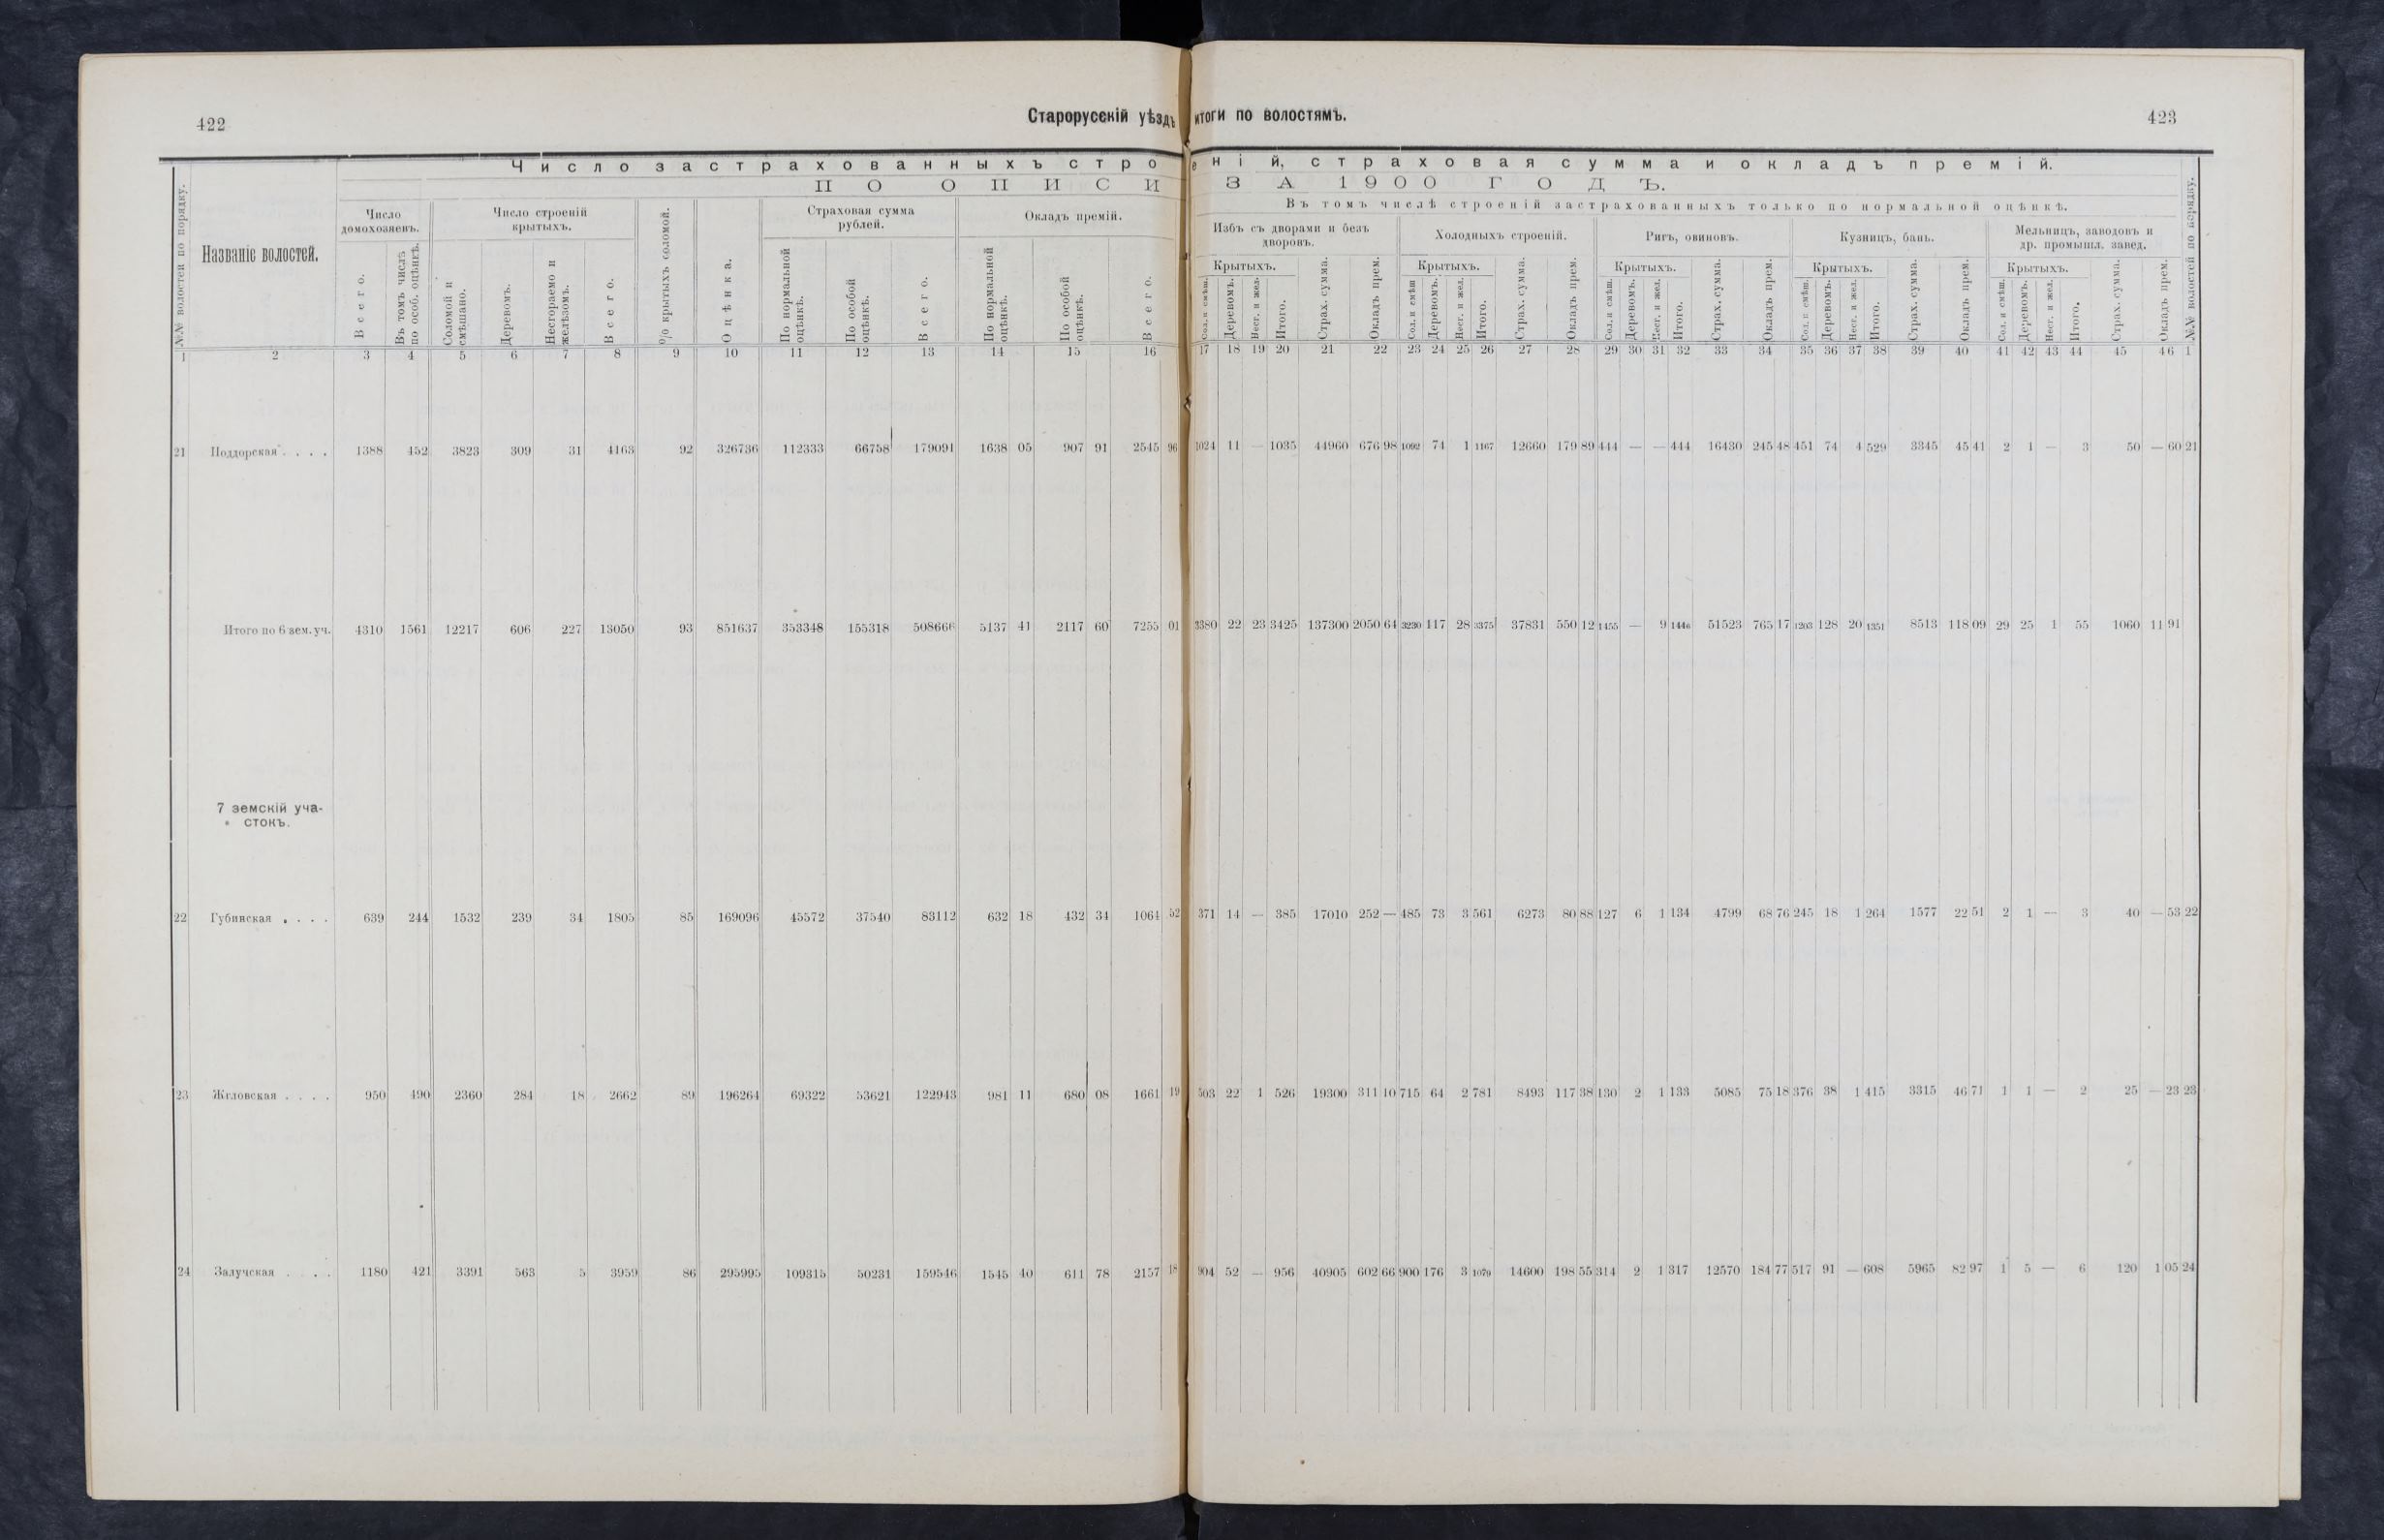 422
Старорусскій уѣздъ
итоги по волостямъ.
423
Число застрахованныхъ строеній, страховая сумма и окладъ премій.
ПО ОПИСИ ЗА 1900 ГОДЪ.
Въ томъ числѣ строеній застрахованныхъ только по нормальной оцѣнкѣ.
№№ волостей по порядку.
Названіе волостей.
Число домохозяевъ.
Всего.
Въ томъ числѣ по особ. оцѣнкѣ.
Число строеній крытыхъ.
Соломой и смѣшано.
Деревомъ.
Несгораемо и желѣзомъ.
Всего.
% крытыхъ соломой.
Оцѣнка.
Страховая сумма рублей.
По нормальной оцѣнкѣ.
По особой оцѣнкѣ.
Всего.
Окладъ премій.
По нормальной оцѣнкѣ.
По особой оцѣнкѣ.
Всего.
Избъ съ дворами и безъ дворовъ.
Крытыхъ.
Сол. и смѣш.
Деревомъ.
Несг. и жел.
Итого.
Страх. сумма.
Окладъ прем.
Холодныхъ строеній.
Крытыхъ.
Сол. и смѣш
Деревомъ.
Несг. и жел.
Итого.
Страх. сумма.
Окладъ прем.
Ригъ, овиновъ.
Крытыхъ.
Сол. и смѣш.
Деревомъ.
Несг. и жел.
Итого.
Страх. сумма.
Окладъ прем.
Кузницъ, бань.
Крытыхъ.
Сол. и смѣш.
Деревомъ.
Несг. и жел.
Итого.
Страх. сумма.
Окладъ прем.
Мельницъ, заводовъ и др. промышл. завед.
Крытыхъ.
Сол. и смѣш.
Деревомъ.
Несг. и жел.
Итого.
Страх. сумма.
Окладъ прем.
№№ волостей по порядку.
1 2 3 4 5 6 7 8 9 10 11 12 13 14 15 16 17 18 19 20 21 22 23 24 25 26 27 28 29 30 31 32 33 34 35 36 37 38 39 40 41 42 43 44 45 46 1
21 Поддорская . . . . 1388 452 3823 309 31 4163 92 326736 112333 66758 179091 1638 05 907 91 2545 96 1024 11 — 1035 44960 676 98 1092 74 1 1167 12660 179 89 444 — — 444 16430 245 48 451 74 4 529 3345 45 41 2 1 — 3 50 — 60 21
Итого по 6 зем. уч. 4310 1561 12217 606 227 13050 93 851637 353348 155318 508666 5137 41 2117 60 7255 01 3380 22 23 3425 137300 2050 64 3230 117 28 3375 37831 550 12 1455 — 9 1446 51523 765 17 1203 128 20 1351 8513 118 09 29 25 1 55 1060 11 91
7 земскій уча-
стокъ.
22 Губинская . . . . 639 244 1532 239 34 1805 85 169096 45572 37540 83112 632 18 432 34 1064 52 371 14 — 385 17010 252 — 485 73 3 561 6273 80 88 127 6 1 134 4799 68 76 245 18 1 264 1577 22 51 2 1 — 3 40 — 53 22
23 Жгловская . . . . 950 490 2360 284 18 2662 89 196264 69322 53621 122943 981 11 680 08 1661 19 503 22 1 526 19300 311 10 715 64 2 781 8493 117 38 130 2 1 133 5085 75 18 376 38 1 415 3315 46 71 1 1 — 2 25 — 23 23
24 Залучская . . . 1180 421 3391 563 5 3959 86 295995 109315 50231 159546 1545 40 611 78 2157 18 904 52 — 956 40905 602 66 900 176 3 1079 14600 198 55 314 2 1 317 12570 184 77 517 91 — 608 5965 82 97 1 5 — 6 120 1 05 24